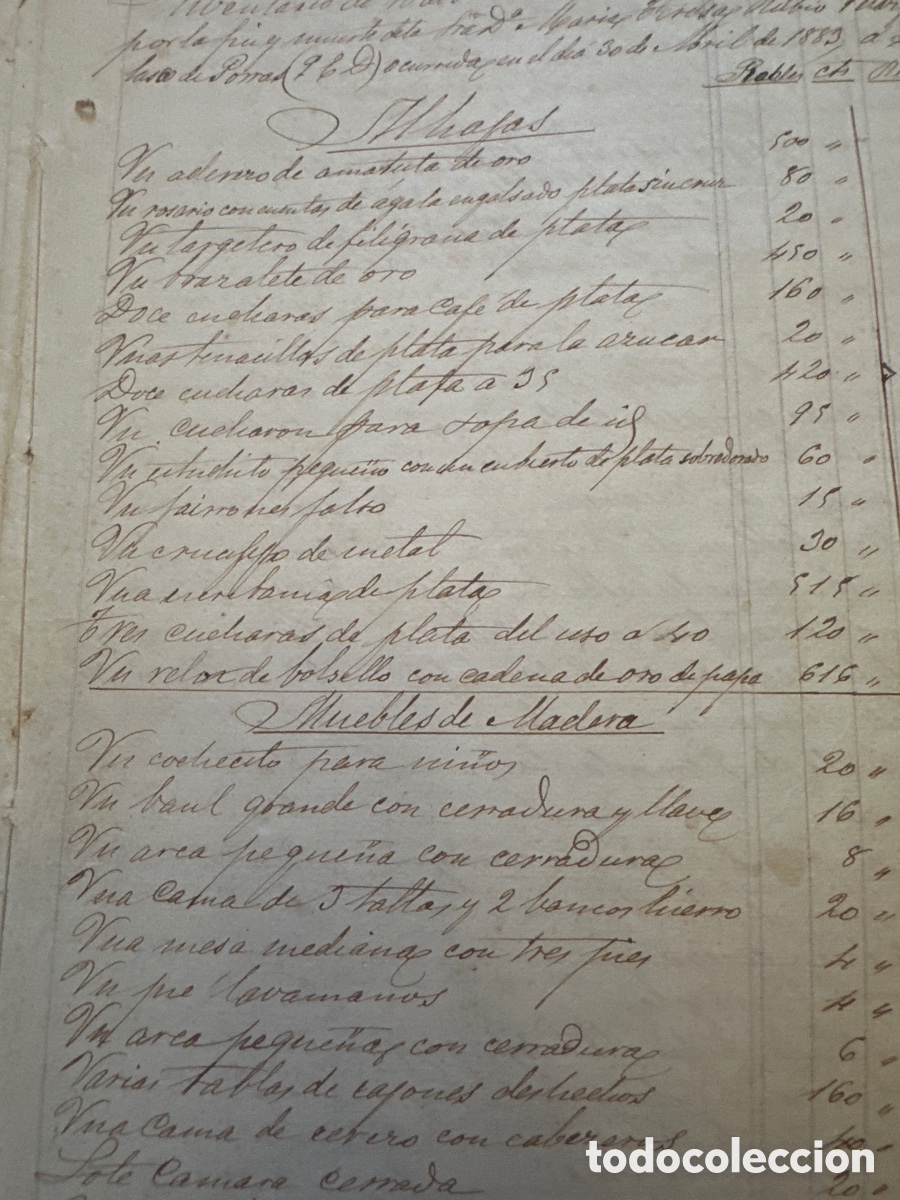 Inventario de
por la fin y muerte de la Sra Dª Maria Teresa Rubio
lasco de Porras (Q E D) ocurrida en el dia 30 de Abril de 1883, a
Reales cts
Alhajas
Un aderezo de amatista de oro 500 "
Un rosario con cuentas de ágata engalsado plata sin cruz 80 "
Un targetero de filigrana de plata 20 "
Un brazalete de oro 450 "
Doce cucharas para cafe de plata 160 "
Unas tinacillas de plata para la azucar 20 "
Doce cucharas de plata a 35 420 "
Un cucharon para sopa de id 95 "
Un estuchito pequeño con un cubierto de plata sobredorado 60 "
Un falso 15 "
Un crucifijo de metal 30 "
Una escribania de plata 515 "
Tres cucharas de plata del uso a 40 120 "
Un relox de bolsillo con cadena de oro de papa 616 "
Muebles de Madera
Un cochecito para niños 20 "
Un baul grande con cerradura y llave 16 "
Un arca pequeña con cerradura 8 "
Una cama de 5 tablas y 2 bancos hierro 20 "
Una mesa mediana con tres pies 4 "
Un pie lavamanos 4 "
Un arca pequeña con cerradura 6 "
Varias tablas de cajones deshechos 160 "
Una cama de con 40 "
Lote Camara cerrada 20 "
todocoleccion